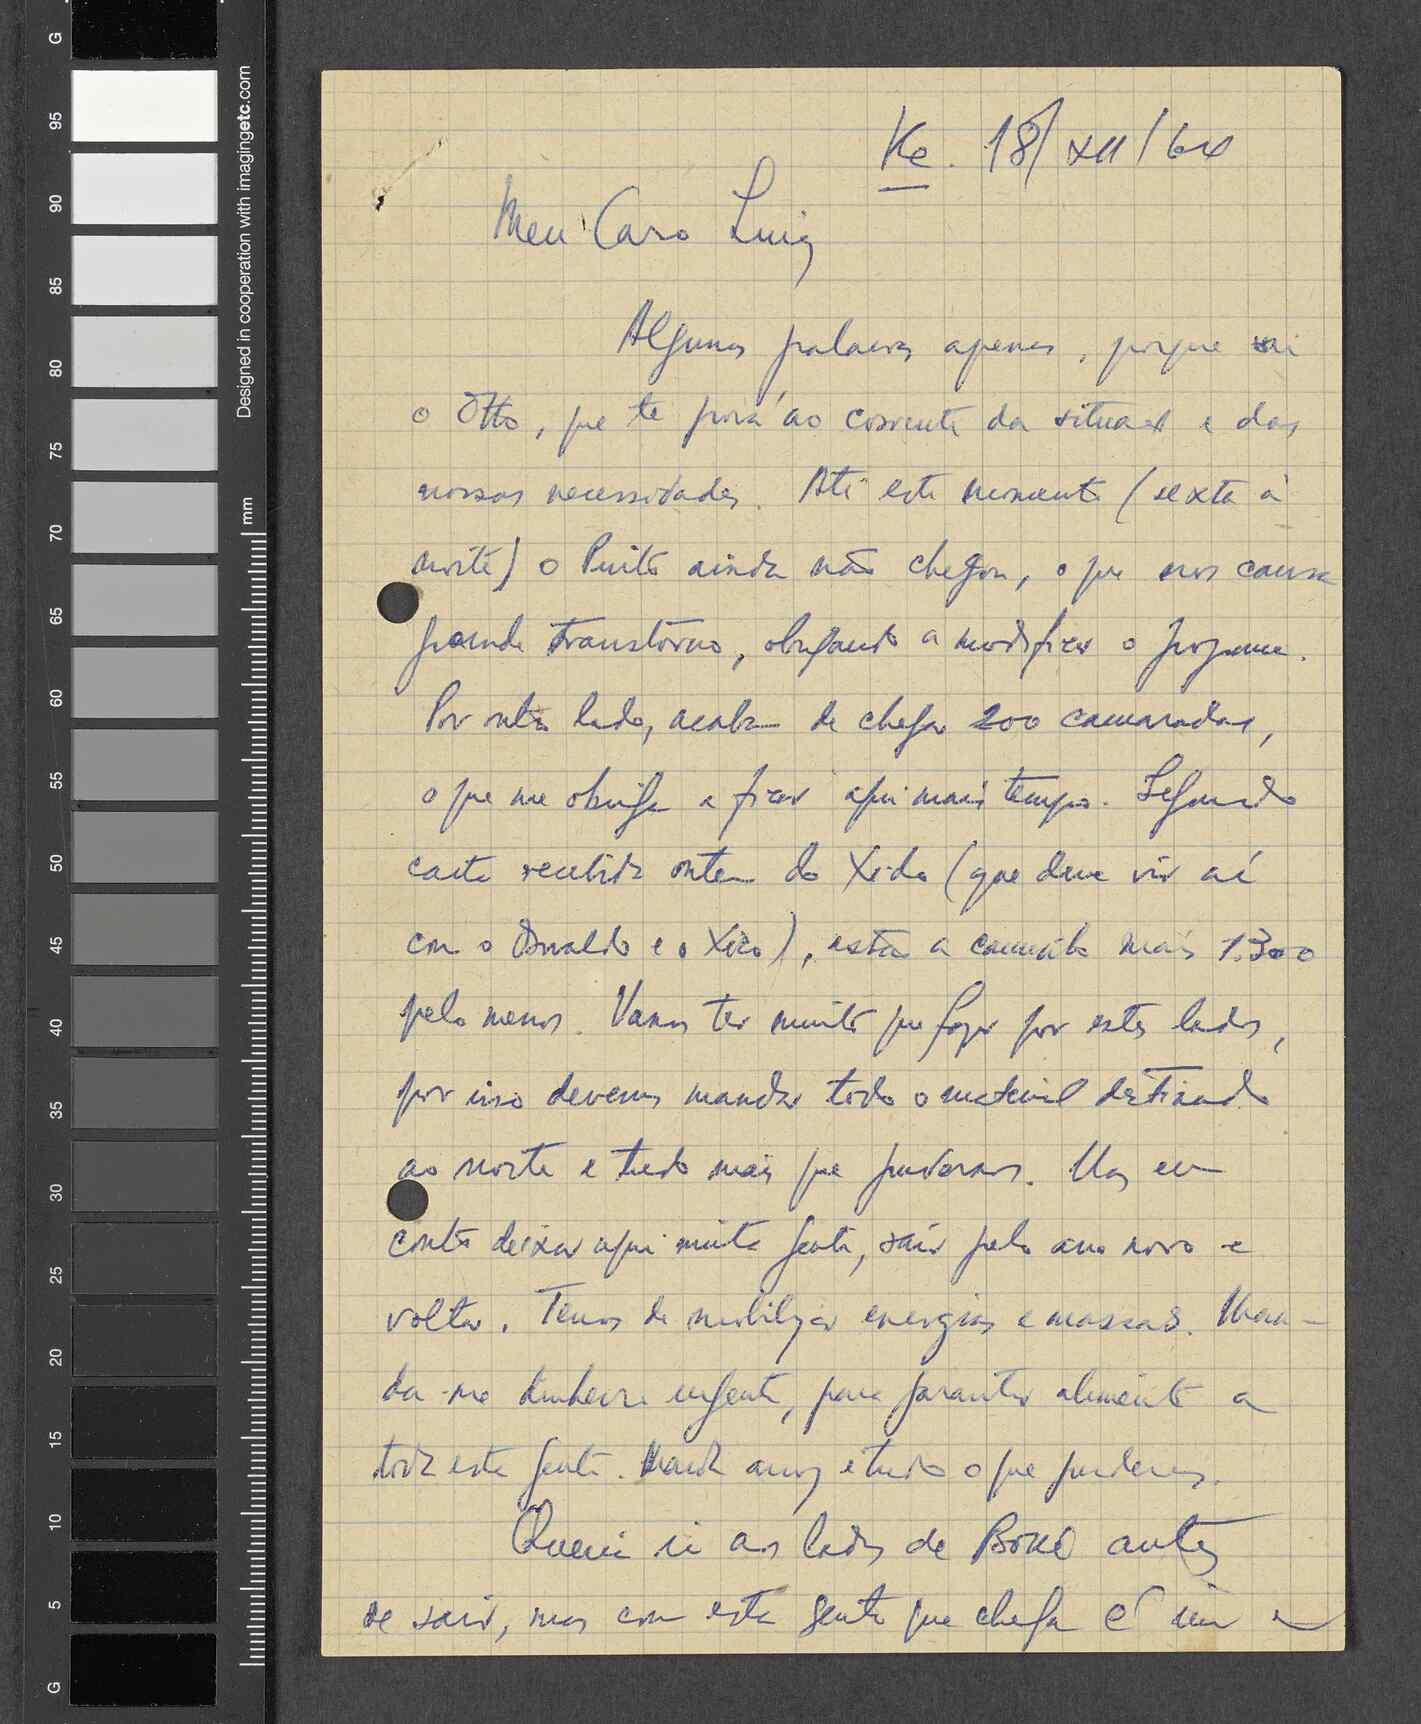 G
95
90
85
80
75
70
65
60
55
50
45
40
35
30
25
20
15
10
5
G
Designed in cooperation with imagingetc.com
mm
Ke. 18/XII/64
Meu Caro Luiz
Algumas palavras apenas, porque vai
o Otto, que te porá ao corrente da situação e das
nossas necessidades. Até este momento (sexta à
noite) o Pinto ainda não chegou, o que nos causa
grande transtôrno, obrigando a modificar o programa.
Por outro lado, acabam de chegar 200 camaradas,
o que me obriga a ficar aqui mais tempo. Segundo
carta recebida ontem do Xido (que deve vir aí
com o Osvaldo e o Xico), estão a caminho mais 1.300
pelo menos. Vamos ter muito que fazer por estes lados,
por isso devemos mandar todo o material destinado
ao norte e tudo mais que pudermos. Mas eu
conto deixar aqui muita gente, sair pelo ano novo e
voltar. Temos de mobilizar energias e massas. Man-
da-me dinheiro urgente, para garantir alimento a
toda esta gente. Manda arroz e tudo o que puderes.
Queria ir aos lados de Boké antes
de sair, mas com esta gente que chega é